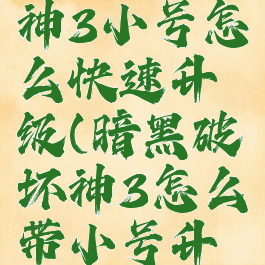 神3小号怎
么快速升
级(暗黑破
坏神3怎么
带小号升